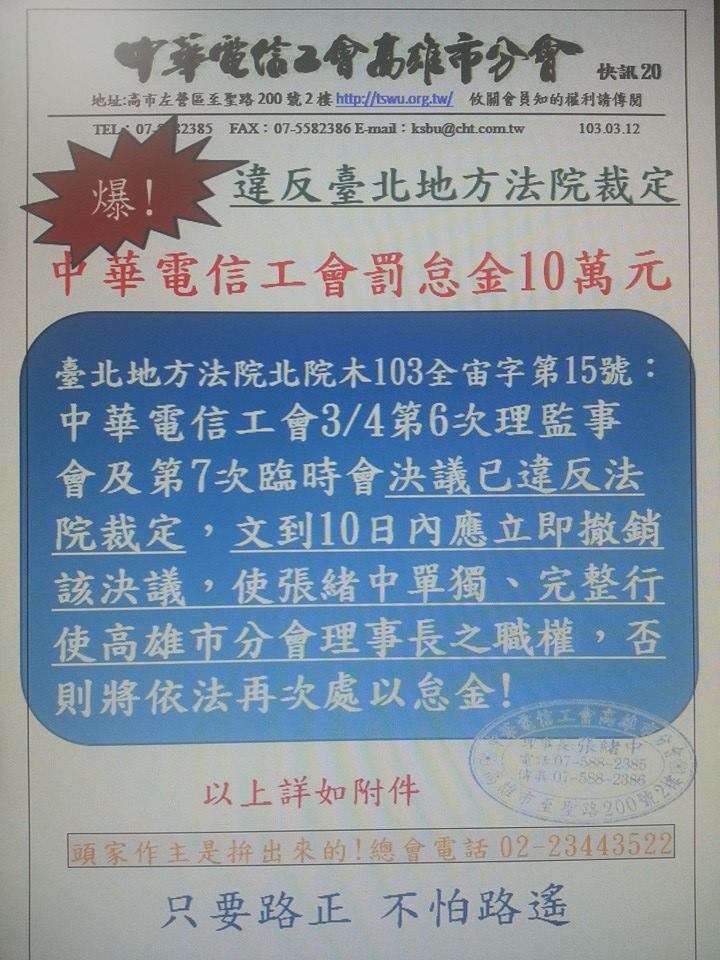 中華電信工會高雄市分會 快訊20
地址:高市左營區至聖路200號2樓 http://tswu.org.tw/ 攸關會員知的權利請傳閱
TEL：07- 2385 FAX：07-5582386 E-mail：ksbu@cht.com.tw 103.03.12
爆!
違反臺北地方法院裁定
中華電信工會罰怠金10萬元
臺北地方法院北院木103全宙字第15號：
中華電信工會3/4第6次理監事
會及第7次臨時會決議已違反法
院裁定，文到10日內應立即撤銷
該決議，使張緒中單獨、完整行
使高雄市分會理事長之職權，否
則將依法再次處以怠金!
電信工會高雄市分
理事長張緒中
電話07-588-2385
傳真07-588-2386
雄市至聖路200號2樓
以上詳如附件
頭家作主是拚出來的!總會電話 02-23443522
只要路正 不怕路遙